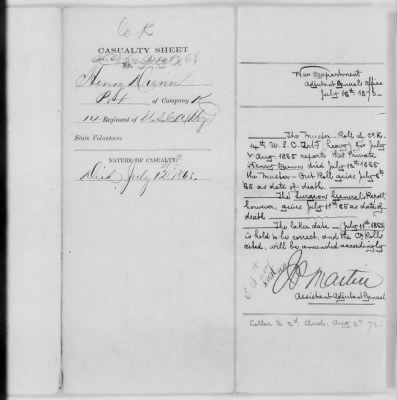 Co K
CASUALTY SHEET
No.
Henry Dunn
Pvt of Company K
14 Regiment of U.S.C.A. Hvy
State Volunteers
NATURE OF CASUALTY
Died July 12th 1865.
War Department
Adjutant General's Office
July 16th 187
The Muster Roll of Co K.
14th U.S.C. Art. (heavy) for July
& Aug 1865 reports that Private
Henry Dunn died July 12th 1865
the Muster-Out Roll gives July 6th
65 as date of death.
The Surgeon General's Report
however, gives July 11th 65 as date of
death
The later date — July 11th 1865
is held to be correct, and the Co Rolls
cited, will be amended accordingly
J P Martin
Assistant Adjutant General
to 2d. Aud. Aug 2d 7